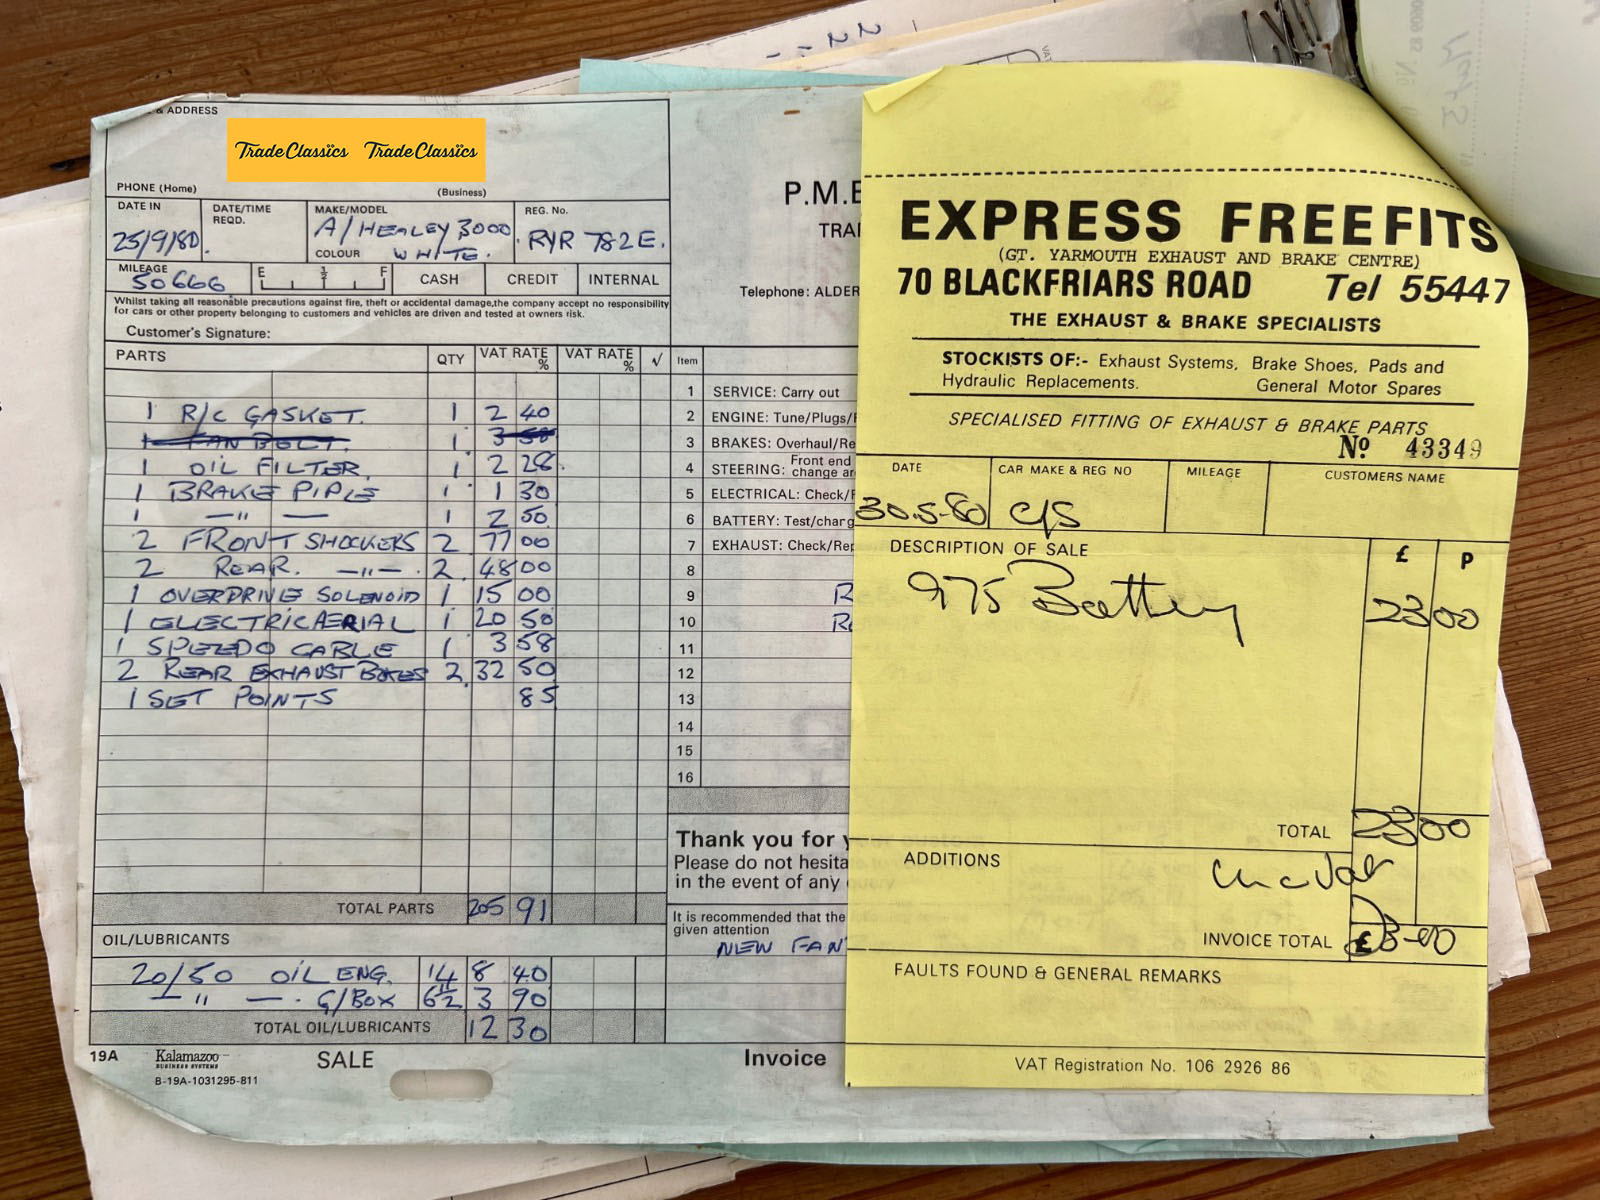 & ADDRESS
TradeClassics TradeClassics
PHONE (Home) (Business)
DATE IN DATE/TIME REQD. MAKE/MODEL REG. No.
25/9/80 A/HEALEY 3000 RYR 782E.
COLOUR WHITE.
MILEAGE E ½ F CASH CREDIT INTERNAL
50666
Whilst taking all reasonable precautions against fire, theft or accidental damage,the company accept no responsibility
for cars or other property belonging to customers and vehicles are driven and tested at owners risk.
Customer's Signature:
PARTS QTY VAT RATE % VAT RATE % √
1 R/C GASKET. 1 2 40
1 FAN BELT. 1 3 50
1 OIL FILTER. 1 2 28.
1 BRAKE PIPE 1 1 30
1 —"— 1 2 50
2 FRONT SHOCKERS 2 77 00
2 REAR. —"—. 2. 48 00
1 OVERDRIVE SOLENOID 1 15 00
1 ELECTRIC AERIAL 1 20 50
1 SPEEDO CABLE 1 3 58
2 REAR EXHAUST BOXES 2 32 50
1 SET POINTS 85
TOTAL PARTS 205 91
OIL/LUBRICANTS
20/50 OIL ENG. 14 8 40
—"—. G/BOX 6½ 3 90
TOTAL OIL/LUBRICANTS 12 30
19A Kalamazoo SALE Invoice
BUSINESS SYSTEMS
B-19A-1031295-811
P.M.E
TRA
Telephone: ALDER
Item
1 SERVICE: Carry out
2 ENGINE: Tune/Plugs/
3 BRAKES: Overhaul/Re
4 STEERING: Front end
change ar
5 ELECTRICAL: Check/
6 BATTERY: Test/charg
7 EXHAUST: Check/Rep
8
9 R
10 R
11
12
13
14
15
16
Thank you for y
Please do not hesita
in the event of any
It is recommended that the
given attention
NEW FAN
EXPRESS FREEFITS
(GT. YARMOUTH EXHAUST AND BRAKE CENTRE)
70 BLACKFRIARS ROAD Tel 55447
THE EXHAUST & BRAKE SPECIALISTS
STOCKISTS OF:- Exhaust Systems, Brake Shoes, Pads and
Hydraulic Replacements. General Motor Spares
SPECIALISED FITTING OF EXHAUST & BRAKE PARTS
Nº 43349
DATE CAR MAKE & REG NO MILEAGE CUSTOMERS NAME
30.5.80 C/S
DESCRIPTION OF SALE £ P
975 Battery 23 00
TOTAL 23 00
ADDITIONS inc Vat
INVOICE TOTAL £
FAULTS FOUND & GENERAL REMARKS
VAT Registration No. 106 2926 86